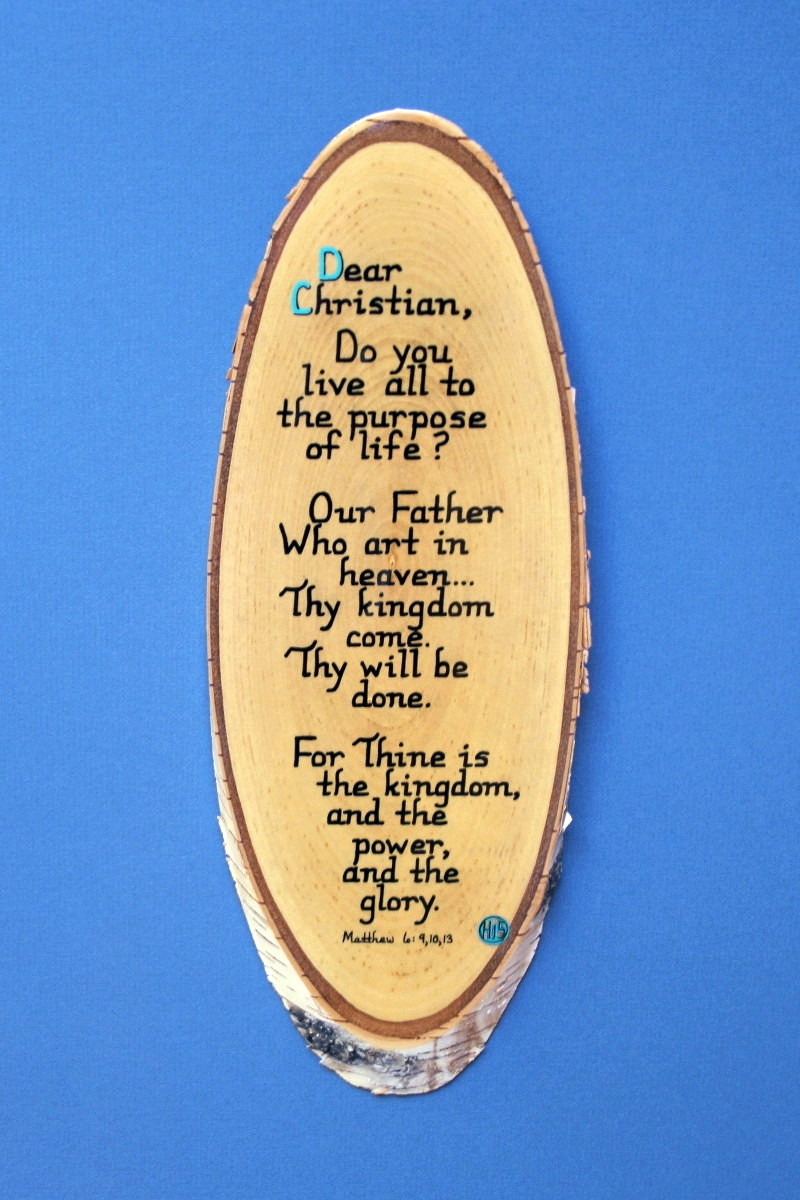 Dear
Christian,
Do you
live all to
the purpose
of life?
Our Father
Who art in
heaven...
Thy kingdom
come.
Thy will be
done.
For Thine is
the kingdom,
and the
power,
and the
glory.
Matthew 6:9,10,13
HIS